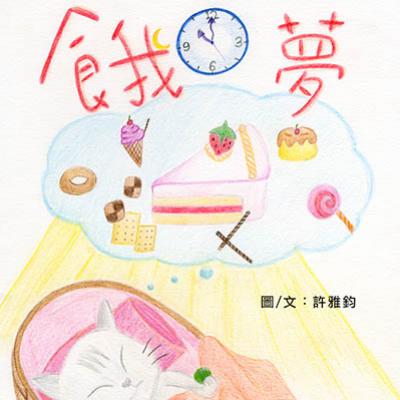 餓夢
12
圖/文：許雅鈞